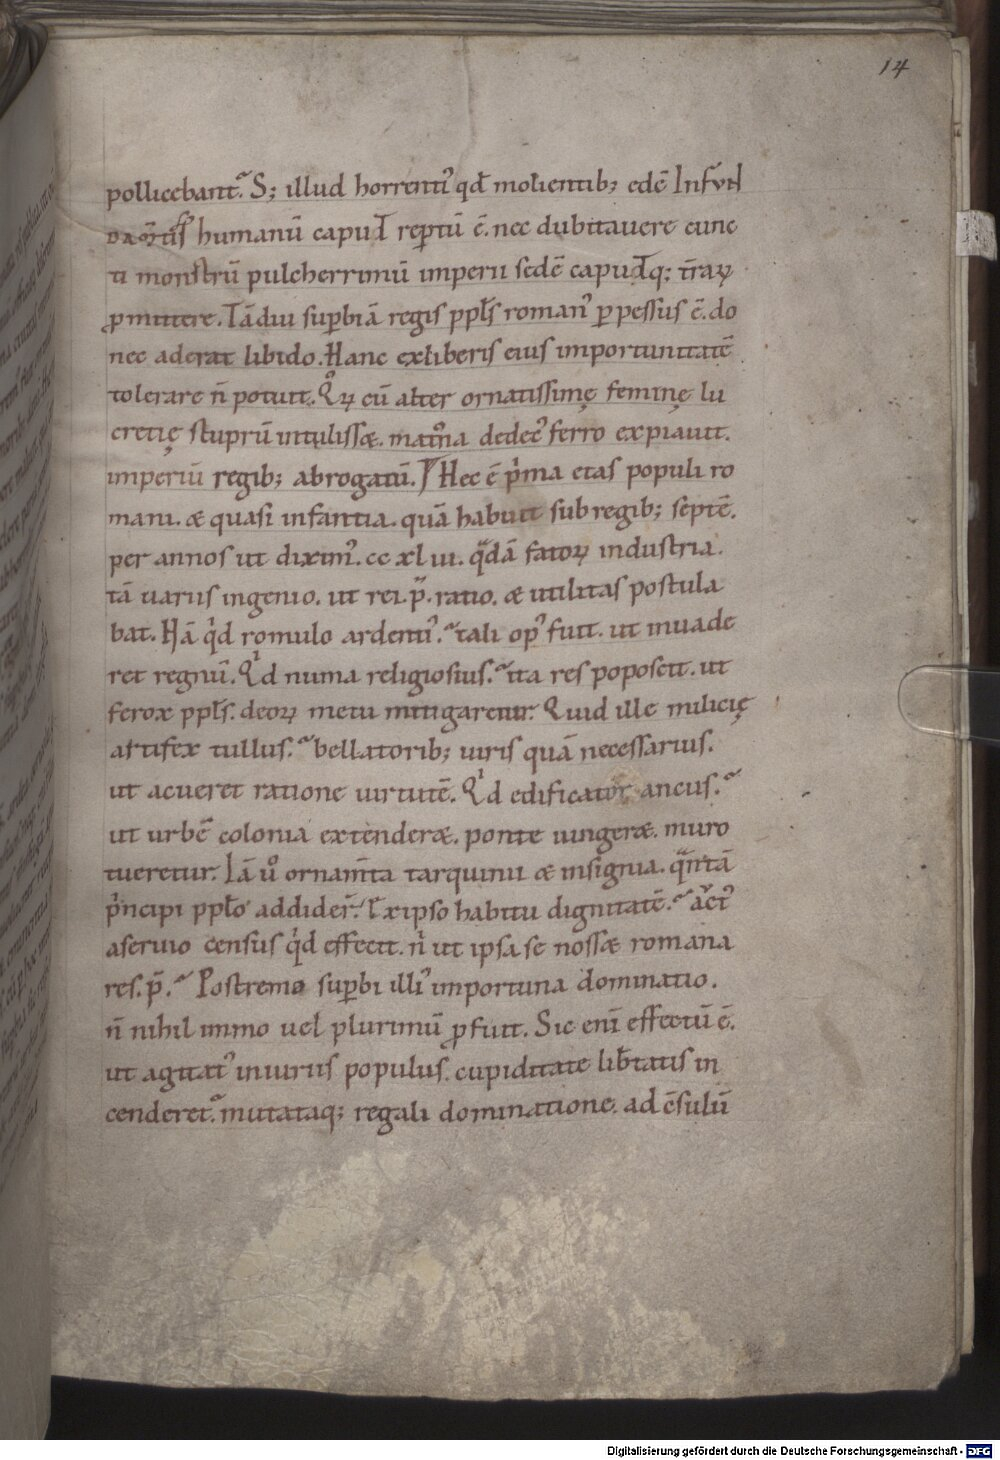 14
pollicebant᷒. S; illud horrenti᷒ qđ molientib; edē InFVN
DAm̄tis humanū capuT rep̄tū ē. nec dubitauere cunc
ti monstrū pulcherrimū imperii sedē capudq; t̄raꝝ
ꝓmittere. Tādiu suꝑbiā regis ppl̄s roman᷒ ꝑpessus ē. do
nec aderat libido. Hanc exliberis eius importunitatē
tolerare n̄ potuit. Qͦꝝ cū alter ornatissimę feminę lu
cretię stuprū intulissæ. matͦna dedec᷒ ferro expiauit.
imperiū regib; abrogatū. Hec ē pͥma etas populi ro
mani. æ quasi infantia. quā habuit sub regib; septē.
per annos ut dixim᷒. cc xl iii. qͣdā fatoꝝ industria.
tā uariis ingenio. ut rei. p̄. ratio. æ utilitas postula
bat. Nā qͥd romulo ardenti᷒. tali op᷒ fuit. ut inuade
ret regnū. Qͥd numa religiosius. ita res poposcit. ut
ferox ppl̄s. deoꝝ metu mitigaretur. Quid ille milicię
artifex tullus. bellatorib; uiris quā necessarius.
ut acueret ratione uirtutē. Qͥd edificator ancus.
ut urbē colonia extenderæ. ponte iungeræ. muro
tueretur. Iā uͦ ornam̄ta tarquinii æ insignia. qͣntā
pͥncipi ppl̄o addider̄. Exipso habitu dignitatē. act᷒
aseruio census qͥd effecit. nͥ ut ipsa se nossæ romana
res. p̄. Postremo suꝑbi illi᷒ importuna dominatio.
n̄ nihil immo uel plurimū ꝓfuit. Sic enī effectū ē.
ut agitat᷒ iniuriis populus. cupiditate lib̄tatis in
cenderet᷒. mutataq; regali dominatione. ad c̄sulū
Digitalisierung gefördert durch die Deutsche Forschungsgemeinschaft - DFG